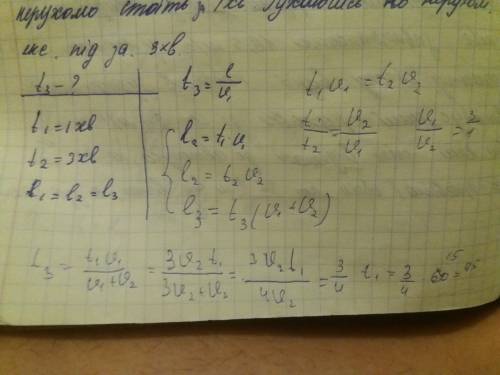 нерухомо стоїть
екс. під за. 3хв
t₃ - ?
t₁ = 1хв
t₂ = 3хв
l₁ = l₂ = l₃
t₃ = l/v₁
l₂ = t₁ v₁
l₂ = t₂ v₂
l₃ = t₃(v₁ + v₂)
t₁ v₁ = t₂ v₂
t₁/t₂ = v₂/v₁ v₁/v₂ = 3/1
t₃ = t₁v₁/(v₁+v₂) = 3v₂ t₁/(3v₂+v₂) = 3v₂ t₁/4v₂ = 3/4 t₁ = 3/4 60 15 = 45